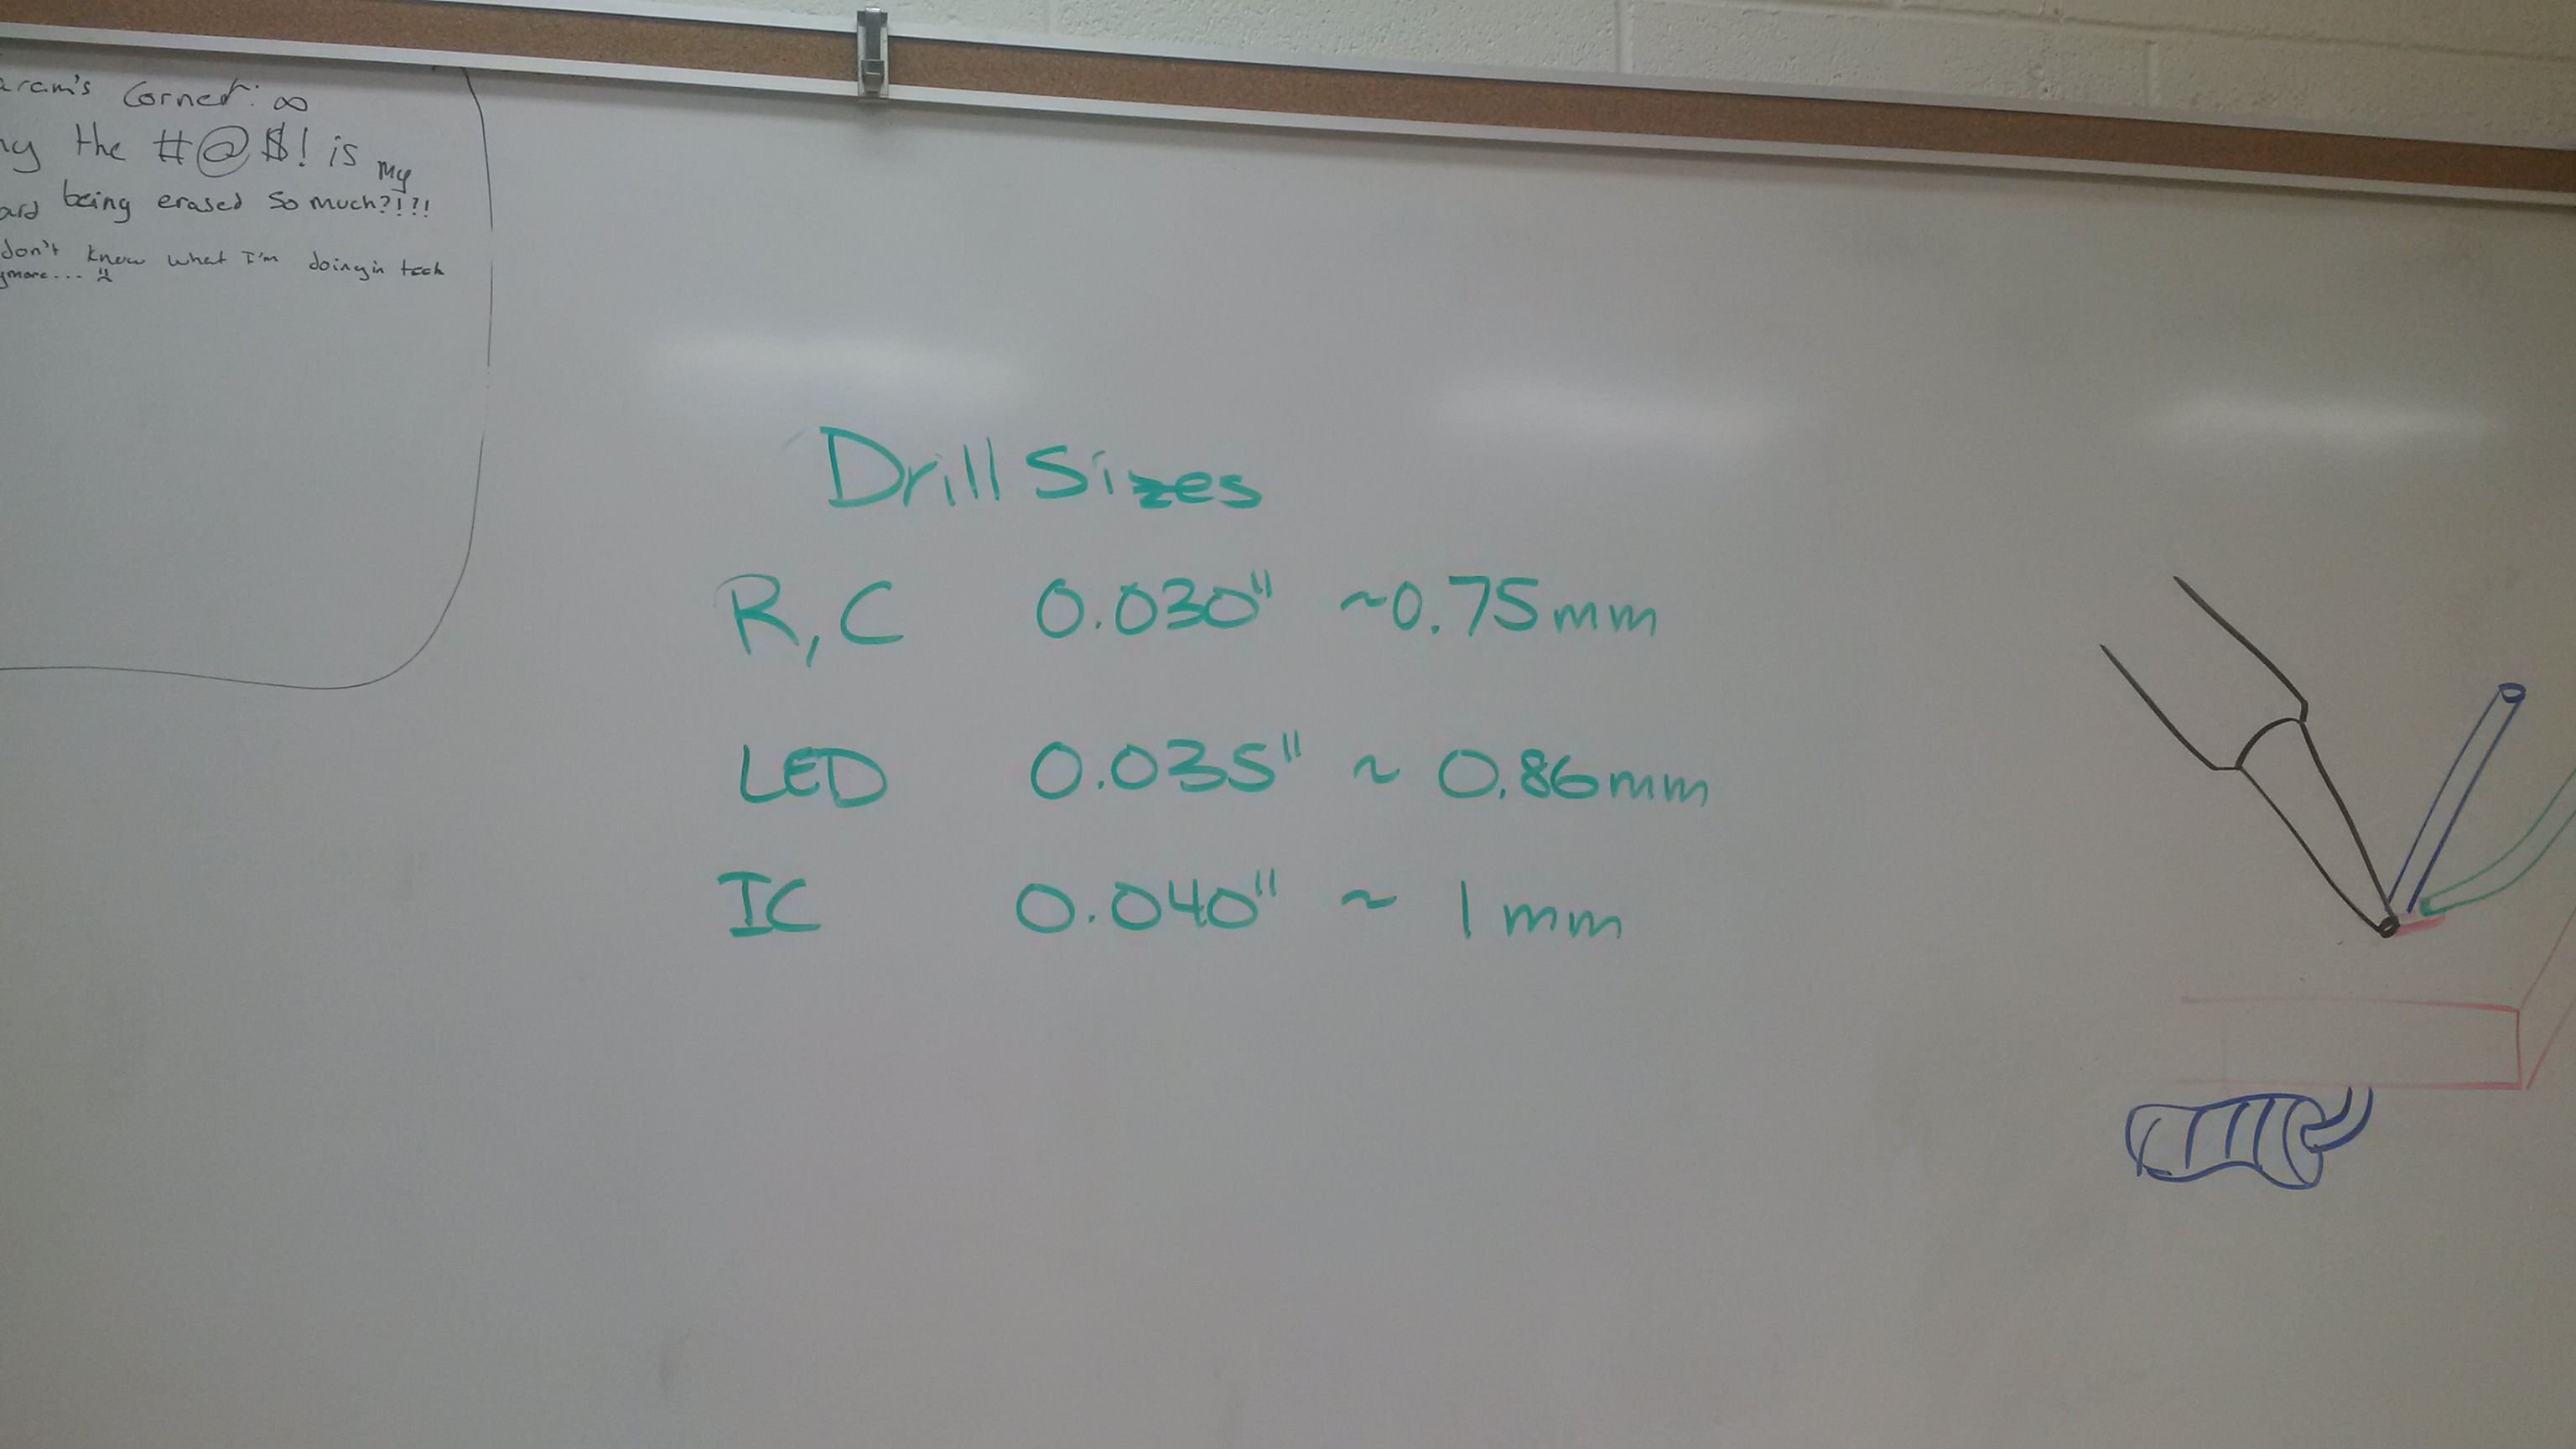 Corner: ∞
the #@$! is my
being erased so much?!?!
don't know what I'm doing in tech
Drill Sizes
R, C 0.030" ~0.75mm
LED 0.035" ~ 0.86mm
IC 0.040" ~ 1mm